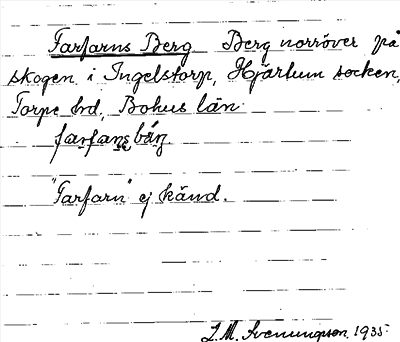 Farfarns Berg Berg norröver på
skogen i Ingelstorp, Hjärtum socken,
Torpe hrd, Bohus län.
farfans bärj.
"Farfarn" ej känd.
L.M. Svenungsson, 1935.